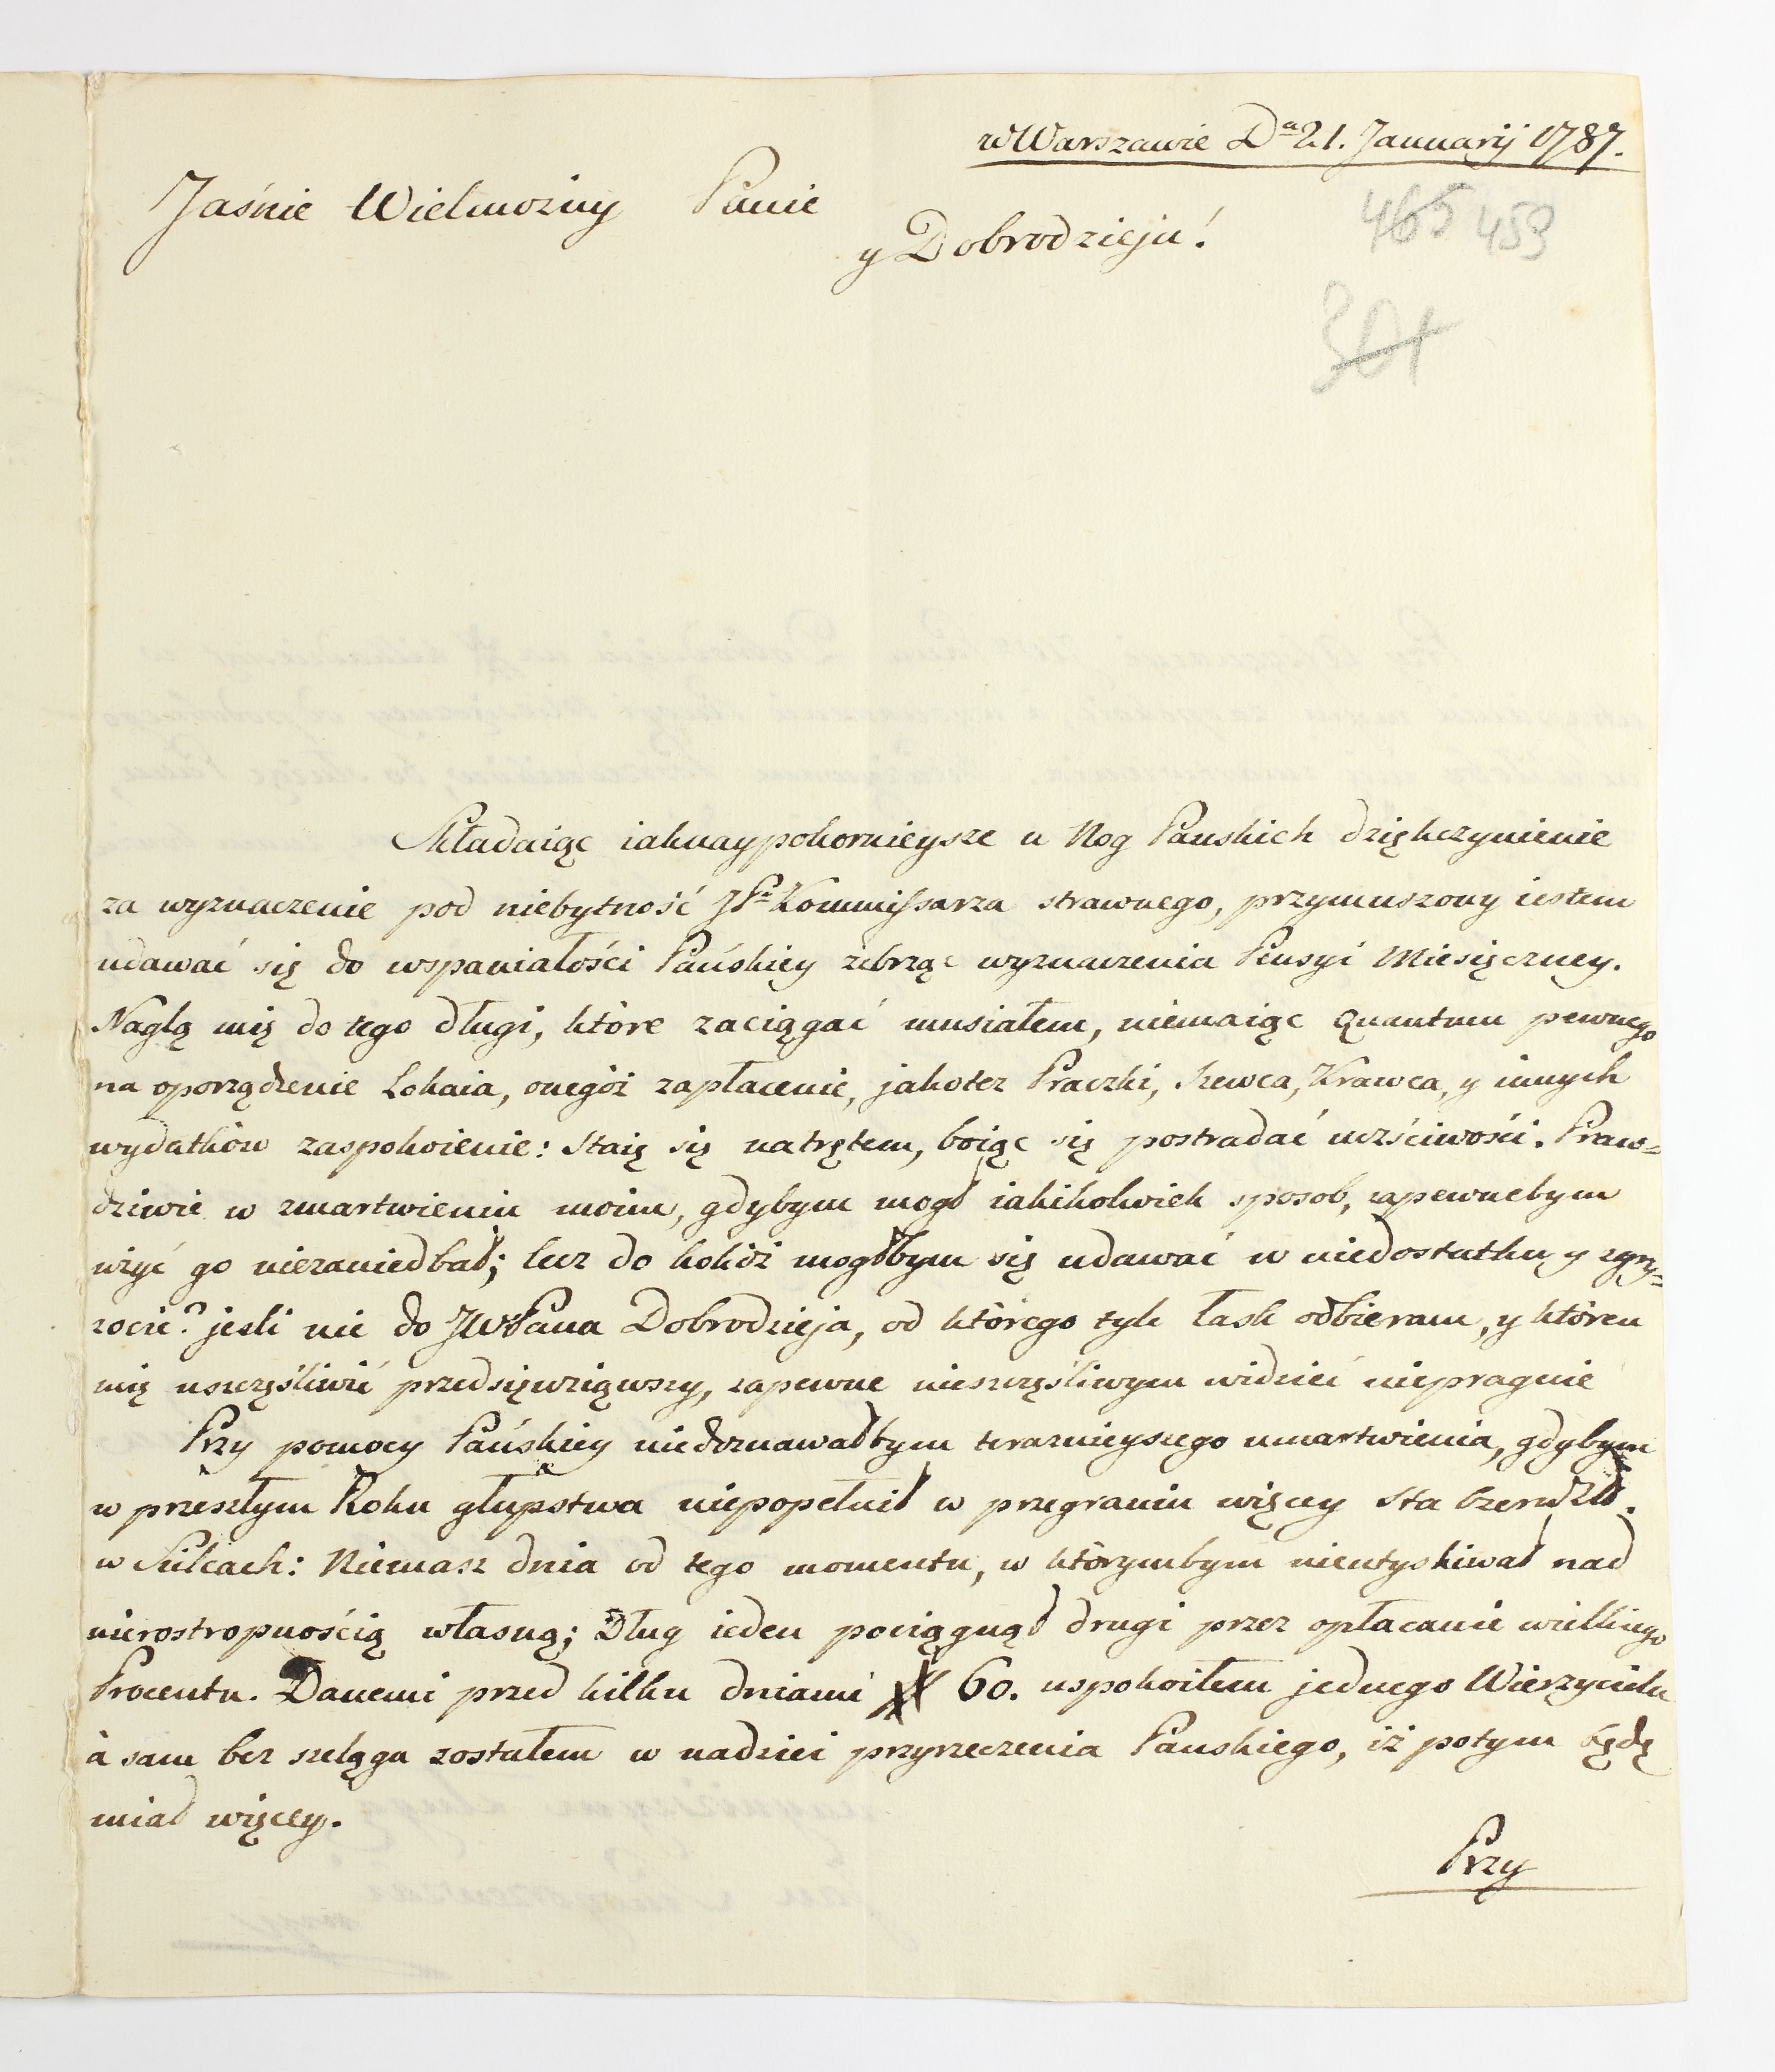 w Warszawie Dª 21. Januarij 1787.
Jaśnie Wielmożny Panie
y Dobrodzieju!
465 459
301
Składaiąc iaknaypokornieysze u Nog Pańskich dziękczynienie
za wyznaczenie pod niebytność JPª Kommissarza strawnego, przymuszony iestem
udawać się do wspaniałości Pańskiey żebrząc wyznaczenia Pensyi Miesięczney.
Naglą mię do tego długi, które zaciągać musiałem, niemaiąc Quantum pewnego
na oporządzenie Lokaia, onegóż zapłacenie, jakoteż Praczki, Szewca, Krawca, y innych
wydatków zaspokoienie: Staię się natrętem, boiąc się postradać uczściwości. Praw=
dziwie w zmartwieniu moim, gdybym mogł iakikolwiek sposob, zapewnebym
użyć go niezaniedbał; lecz do kohóż mogłbym się udawać w niedostatku y zgry=
zocie? jesli nie do JWPana Dobrodzieja, od którego tyle łask odbieram, y któren
mię uszczęśliwić przedsięwziąwszy, zapewne nieszczęśliwym widzieć niepragnie
Przy pomocy Pańskiey niedoznawałbym teraznieyszego umartwienia, gdybym
w przeszłym Roku głupstwa niepopełnił w przegraniu więcey sta Czerw Zł.
w Sielcach: Niemasz dnia od tego momentu, w którymbym nieutyskiwał nad
nierostropnością własną; Dług ieden pociągnął drugi przez opłacanie wielkiego
Procentu. Danemi przed kilku dniami # 60. uspokoiłem jednego Wierzyciela
à sam bez szeląga zostałem w nadziei przyrzeczenia Pańskiego, iż potym będę
miał więcey.
Przy